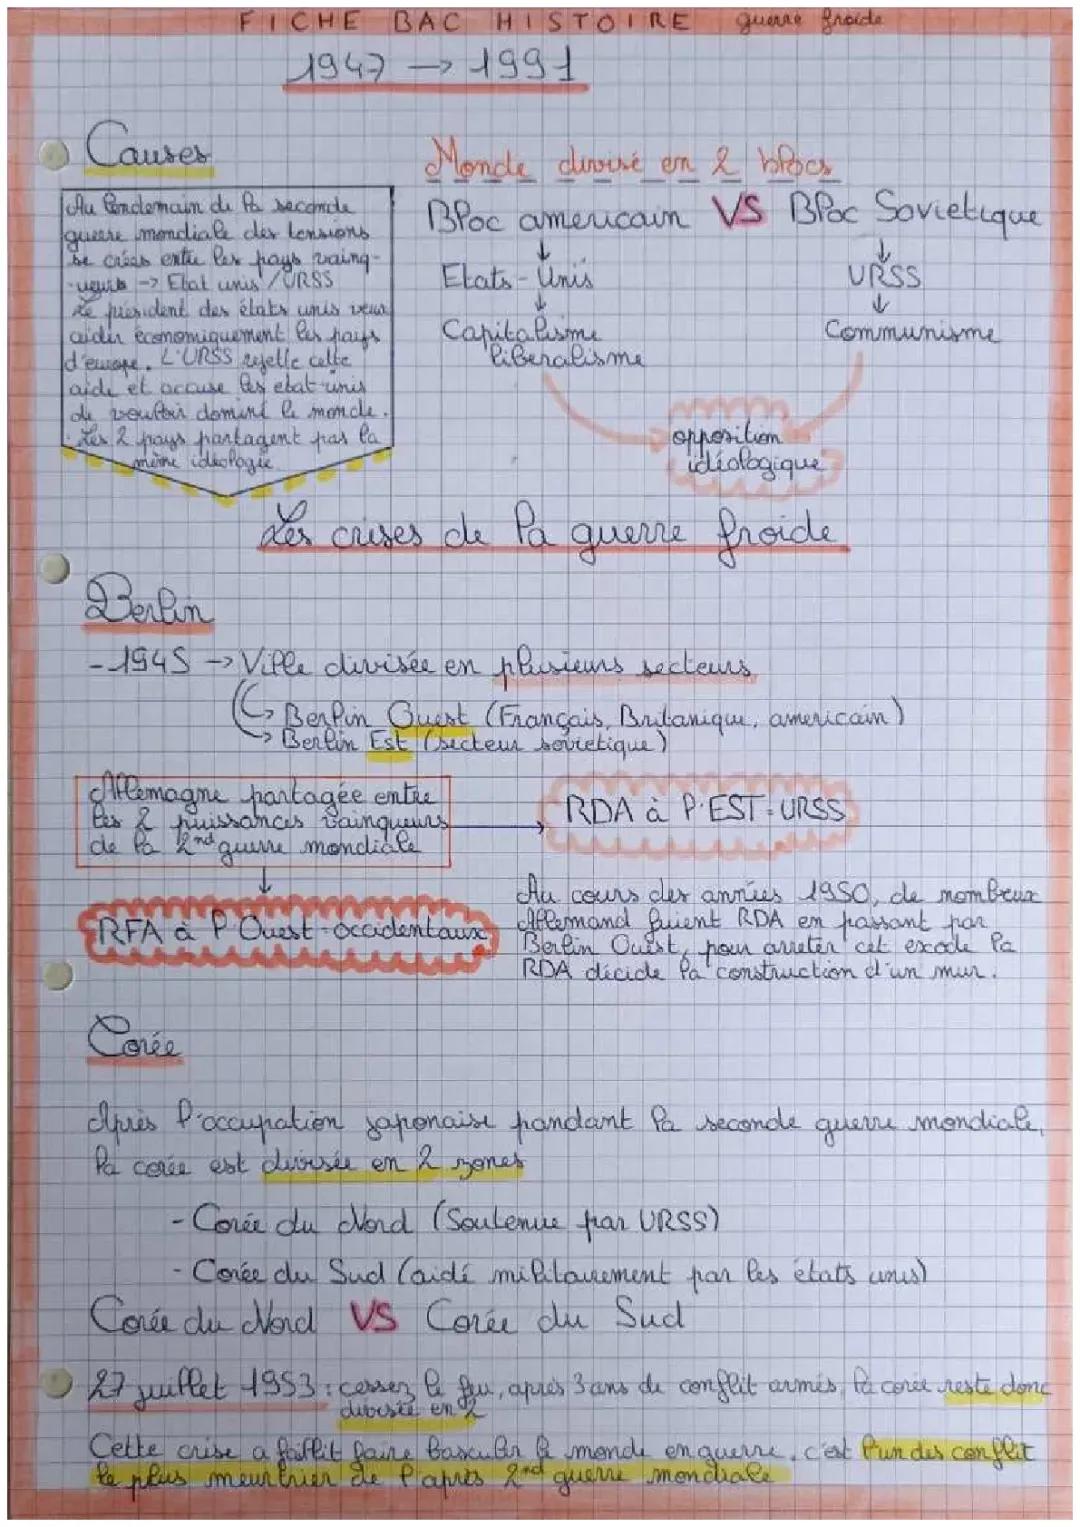 FICHE BAC HISTOIRE guerre froide
1947 → 1991
Causes
Au lendemain de la seconde
guerre mondiale des tensions
se crées entre les pays vainq-
-ueurs → Etat unis / URSS
Le président des états unis veut
aider économiquement les pays
d'europe. L'URSS rejette cette
aide et accuse les etat-unis
de vouloir dominé le monde.
Les 2 pays partagent pas la
même idéologie
Monde divisé en 2 blocs
Bloc americain VS Bloc Sovietique
↓ ↓
Etats-Unis URSS
↓ ↓
Capitalisme Communisme
liberalisme
opposition
idéologique
Les crises de la guerre froide
Berlin
- 1945 → Ville divisée en plusieurs secteurs
→ Berlin Ouest (Français, Britanique, americain)
→ Berlin Est (secteur sovietique)
Allemagne partagée entre
les 2 puissances vainqueurs
de la 2nd guerre mondiale
RDA à l'EST = URSS
↓
RFA à l'Ouest = occidentaux
Au cours des années 1950, de nombreux
Allemand fuient RDA en passant par
Berlin Ouest, pour arreter cet exode la
RDA décide la construction d'un mur.
Corée
Après l'occupation japonaise pandant la seconde guerre mondiale,
la corée est divisée en 2 zones
- Corée du Nord (Soutenue par URSS)
- Corée du Sud (aidé militairement par les états unis)
Corée du Nord VS Corée du Sud
27 juillet 1953 : cessez le feu, après 3 ans de conflit armés, la corée reste donc
divisée en 2
Cette crise a faillit faire basculer le monde en guerre, c'est l'un des conflit
le plus meurtrier de l'après 2nd guerre mondiale